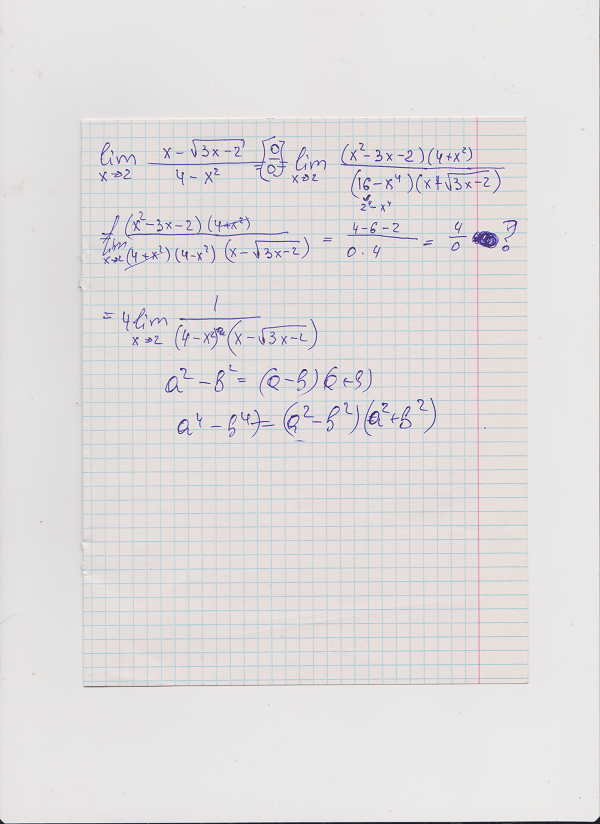 lim x→2 (x - √(3x-2)) / (4 - x²) = [0/0] = lim x→2 ((x² - 3x - 2)(4+x²)) / ((16 - x⁴)(x + √(3x-2)))
2⁴ - x⁴
lim x→2 ((x² - 3x - 2)(4+x²)) / ((4+x²)(4-x²)(x - √(3x-2))) = (4-6-2) / (0·4) = 4/0 ?
= 4 lim x→2 1 / ((4-x²)(x - √(3x-2)))
a² - b² = (a - b)(a + b)
a⁴ - b⁴) = (a² - b²)(a² + b²)